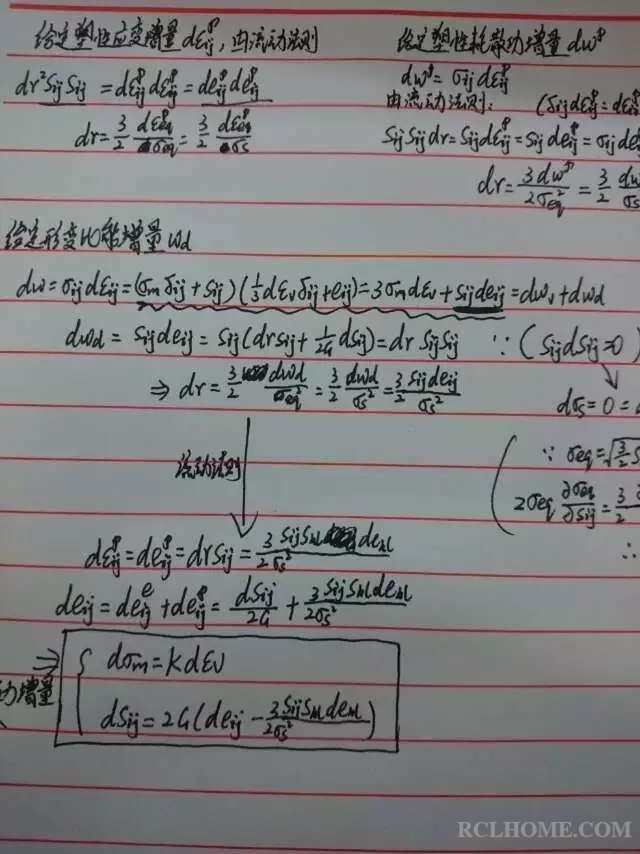 给定塑性应变增量 dεᵢⱼᵖ, 由流动法则
dr²SᵢⱼSᵢⱼ = dεᵢⱼᵖdεᵢⱼᵖ = deᵢⱼᵖdeᵢⱼᵖ
dr = 3/2 dεeqᵖ/σeq = 3/2 dεeqᵖ/σs
给定塑性耗散功增量 dwᵖ
dwᵖ = σᵢⱼdεᵢⱼᵖ
由流动法则: (Sᵢⱼdεᵢⱼᵖ = dεᵢⱼᵖ
SᵢⱼSᵢⱼdr = Sᵢⱼdεᵢⱼᵖ = Sᵢⱼdeᵢⱼᵖ = σᵢⱼde
dr = 3dwᵖ/2σeq² = 3/2 dw/σs
给定形变 增量 wd
dw = σᵢⱼdεᵢⱼ = (σmδᵢⱼ + Sᵢⱼ)(1/3 dεvδᵢⱼ + eᵢⱼ) = 3σmdεv + Sᵢⱼdeᵢⱼ = dwv + dwd
dwd = Sᵢⱼdeᵢⱼ = Sᵢⱼ(drSᵢⱼ + 1/2G dSᵢⱼ) = dr SᵢⱼSᵢⱼ ∵ (SᵢⱼdSᵢⱼ = 0)
⇒ dr = 3/2 dwd/σeq² = 3/2 dwd/σs² = 3/2 Sᵢⱼdeᵢⱼ/σs²
dσs = 0 =
∵ σeq = √3/2 S
2σeq ∂σeq/∂Sᵢⱼ = 3/2
∴
流动法则
dεᵢⱼᵖ = deᵢⱼᵖ = drSᵢⱼ = 3SᵢⱼSₖₗdeₖₗ/2σs²
deᵢⱼ = deᵢⱼᵉ + deᵢⱼᵖ = dSᵢⱼ/2G + 3SᵢⱼSₖₗdeₖₗ/2σs²
⇒ { dσm = Kdεv
功增量
dSᵢⱼ = 2G(deᵢⱼ - 3SᵢⱼSₖₗdeₖₗ/2σs²)
RCLHOME.COM